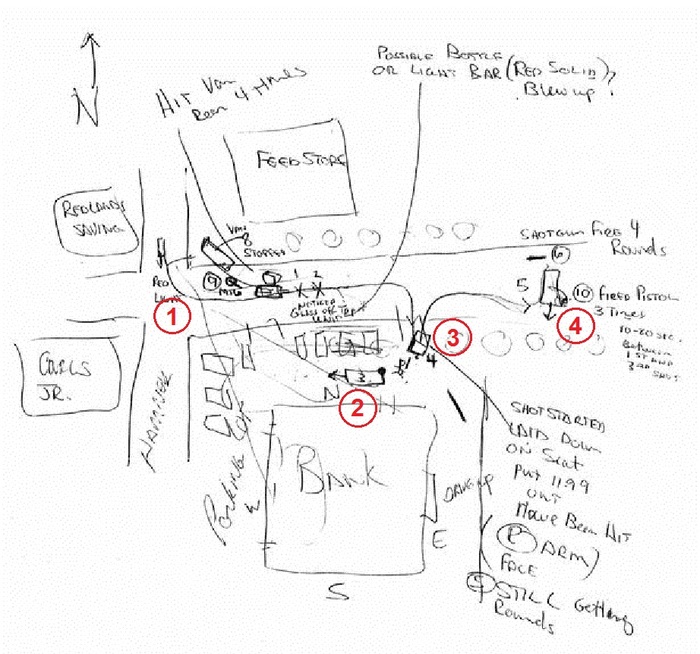 POSSIBLE BOTTLE
OR LIGHT BAR (RED SOLID)?
Blew up.
HIT VAN
Rear 4 times
N
FEED STORE
REDLANDS
SAVING
VAN
8
STOPPED
SHOTGUN FIRE 4
Rounds
6
5
10
FIRED PISTOL
3 Times
10-20 SEC.
Between
1ST AND
3RD SHOT
9
MTG
1 2
X X
RED
LIGHT
1
GLASS OF
UNIT
3
4
4
3
2
N
CARLS
JR.
HAMNER
Parking
W
BANK
E
S
SHOT STARTED
LAID DOWN
ON Seat
Put 1199
OUT
Have Been Hit
ARM
FACE
STILL Getting
Rounds